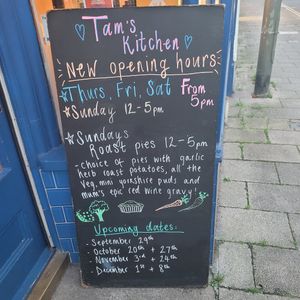 Tam's
Kitchen
New opening hours
Thurs, Fri, Sat From
5pm
Sunday 12-5pm
Sundays
Roast pies 12-5pm
- Choice of pies with garlic
herb roast potatoes, all the
veg, mini yorkshire puds and
mum's epic red wine gravy!
Upcoming dates:
- September 29th
- October 20th + 27th
- November 3rd + 24th
- December 1st + 8th